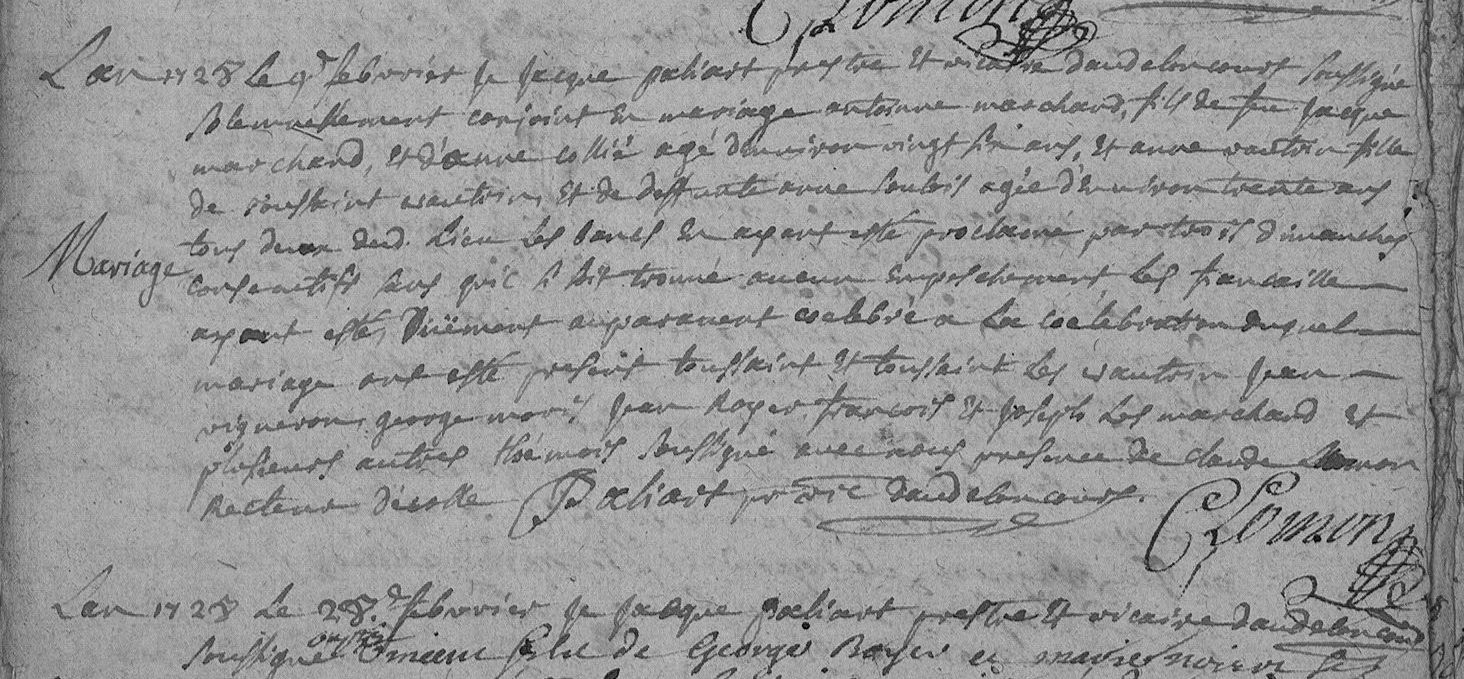 CLomon
Lan 1728 le 9d febvrier Je Jacque paliart prestre Et vicaire daudeloncourt soussigné
solemnéllement conjoint En mariage antoinne marchand, fils de feu Jacque
marchand, Et d'anne collié agé d'environ vingt six ans, Et anne vautrin fille
de toussaint vautrin, Et de deffunte anne agée d'Environ trente ans
tous deux dud. Lieu Les bancs En ayant esté proclamé par trois dimanches
consecutifs sens qu'il s'i soit trouvé aucun Empeschement Les fiancaille
ayant estés auparavent celebré a La celebration duquel
Mariage
mariage ont esté present toussaint Et toussaint Les vautrin Jean
vigneron, george Jean Royer francois Et Joseph Les marchand Et
plusieurs autres thémois soussigné avec nous presence de claude Lomon
Recteur d'écolle JPaliart pr vic daudeloncourt.
CLomon
Lan 1728 Le 28.d febvrier Je Jacque paliart prestre Et vicaire daudeloncour
soussigné fille de George Royer et